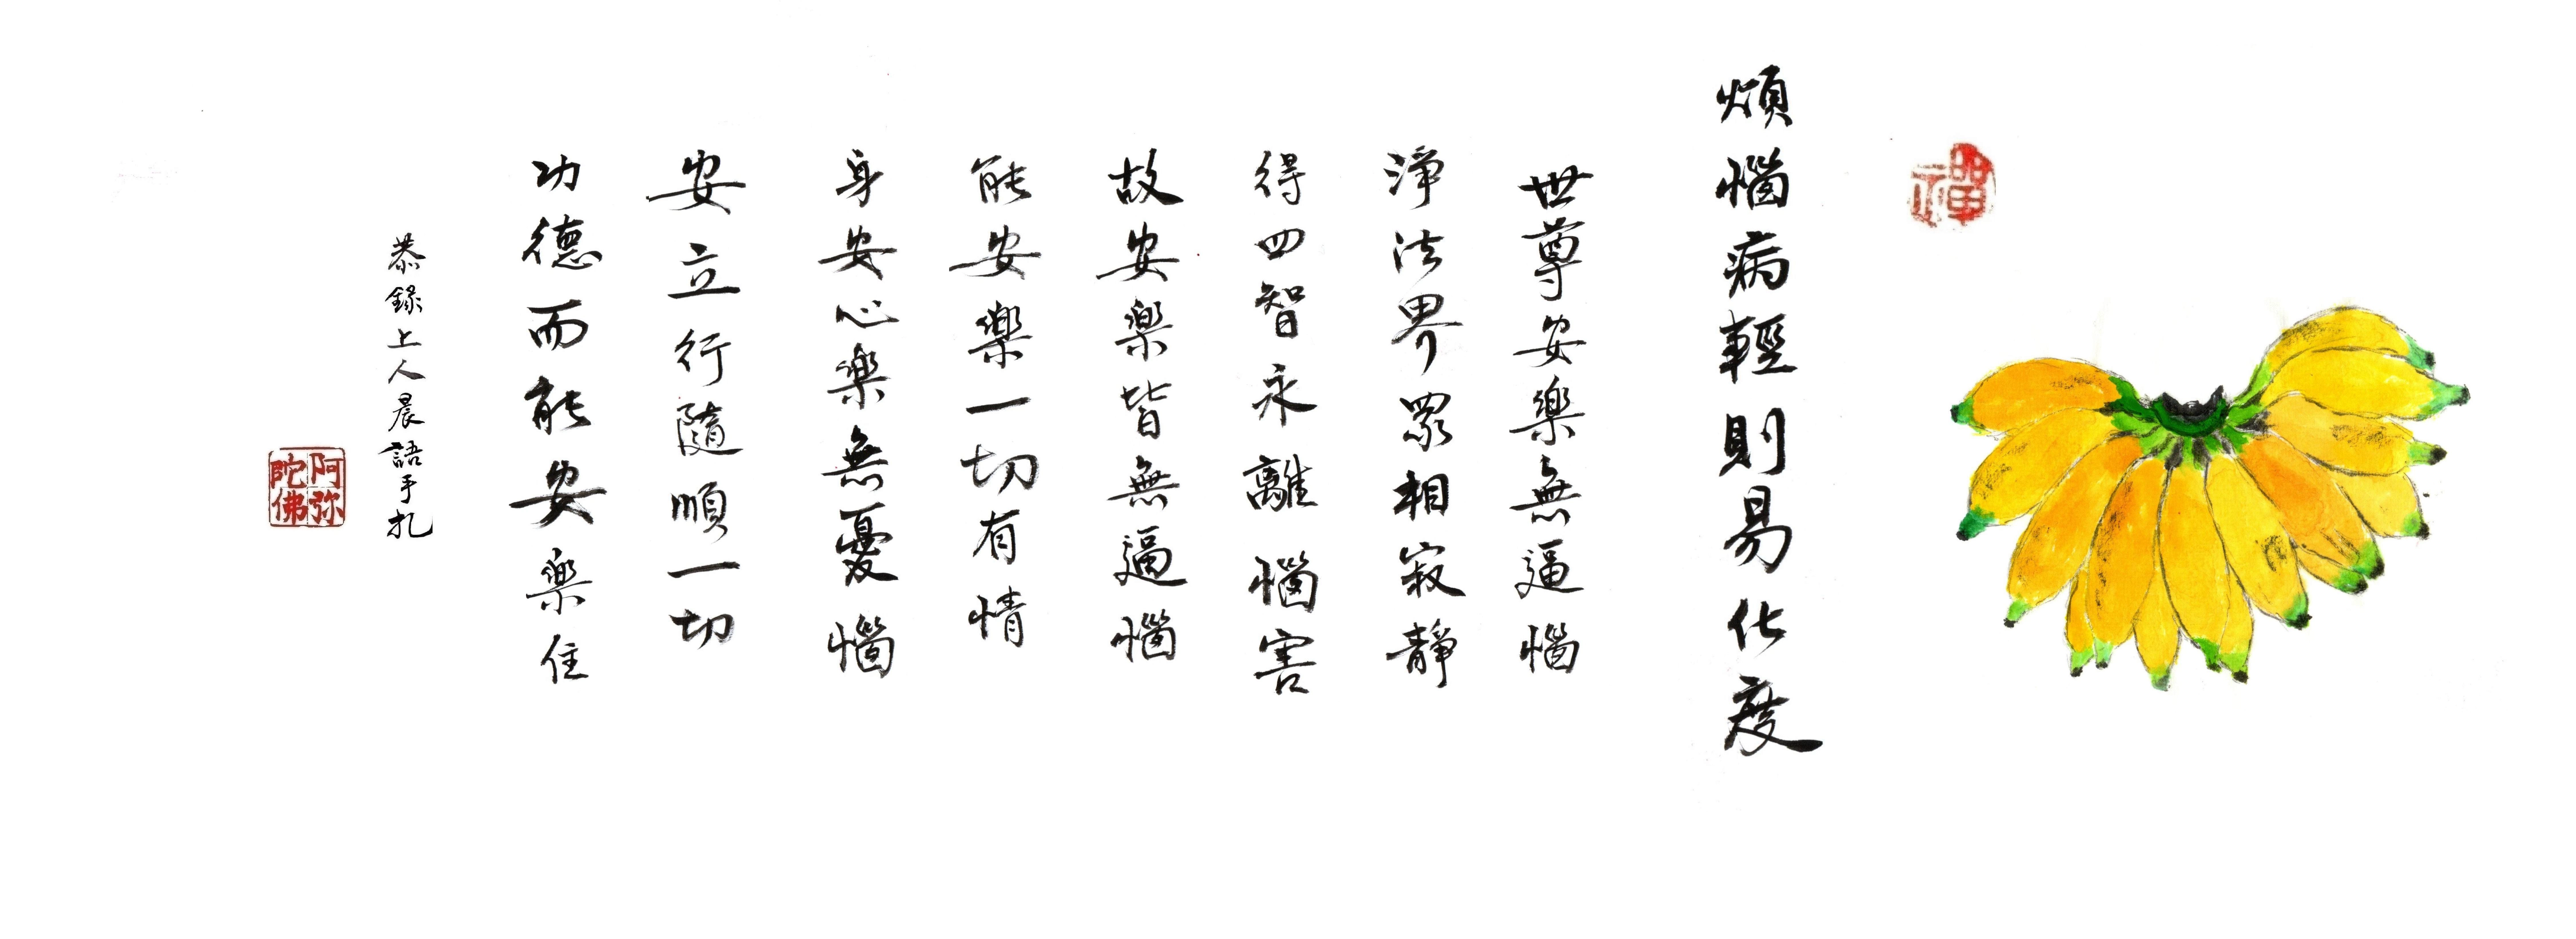 禪
煩惱病輕則易化度
世尊安樂無逼惱
淨法界眾相寂靜
得四智永離惱害
故安樂皆無逼惱
能安樂一切有情
身安心樂無憂惱
安立行隨順一切
功德而能安樂住
恭錄上人晨語手扎
阿弥
陀佛